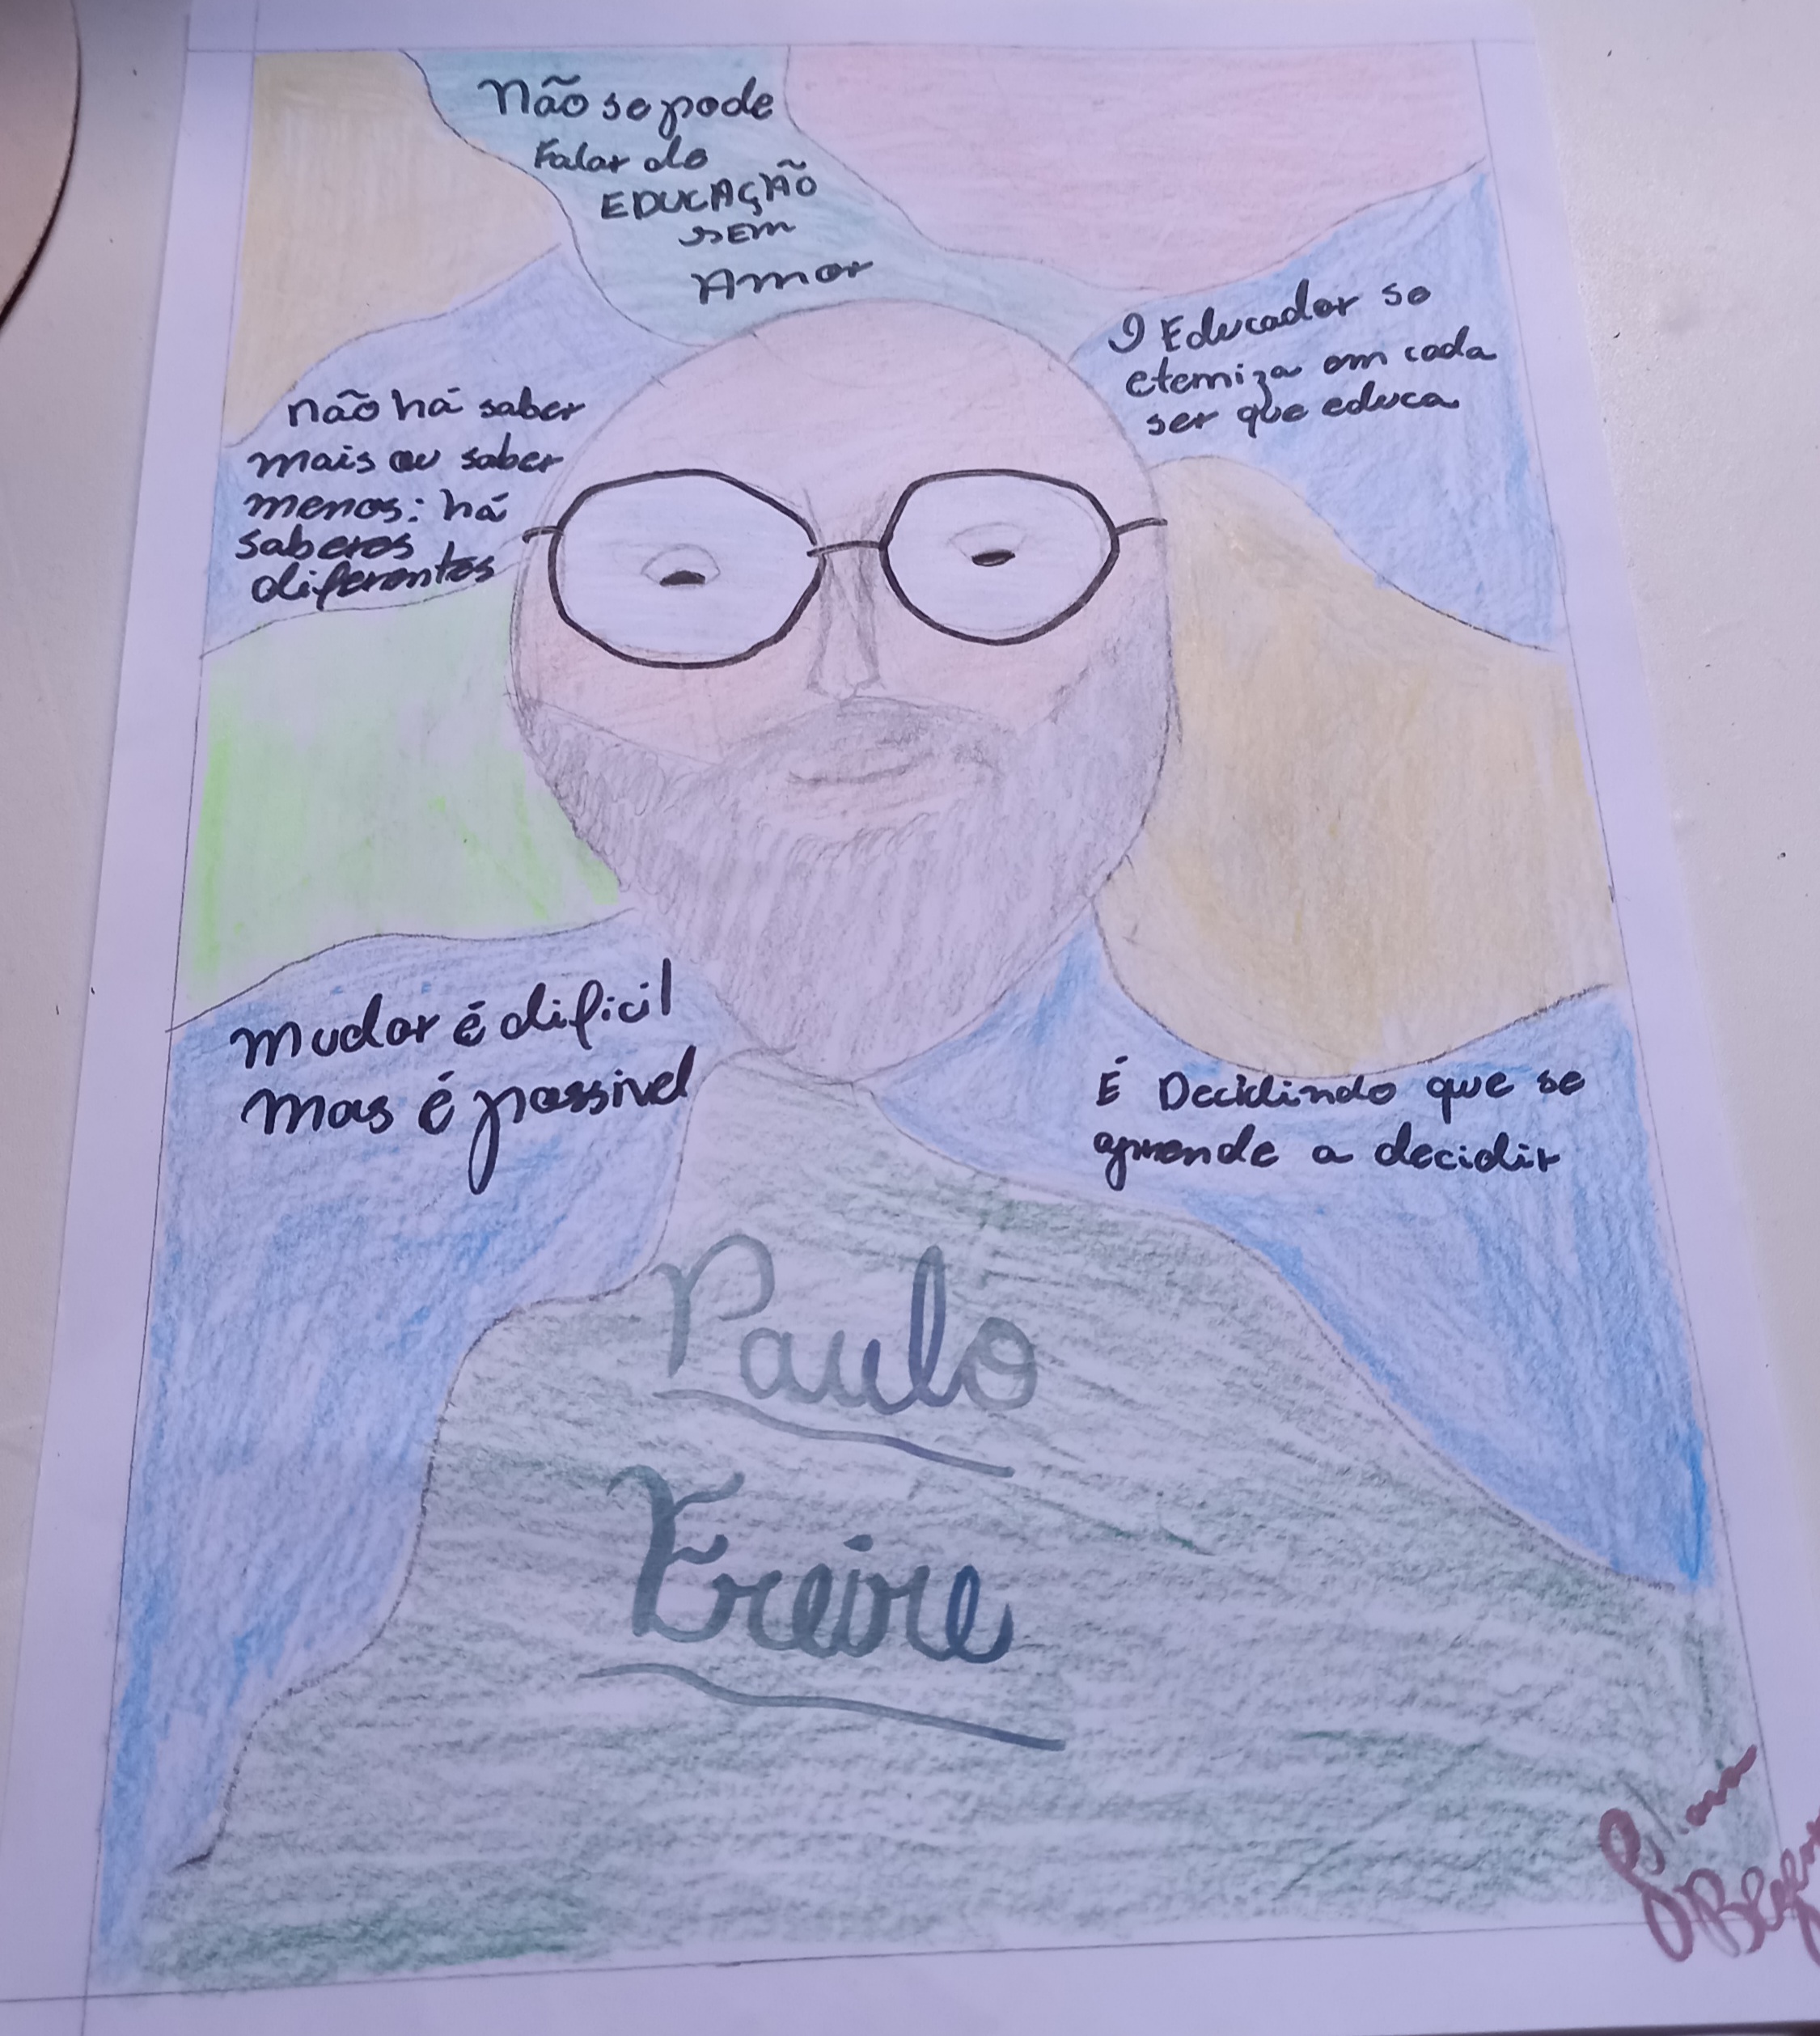 Não se pode
Falar de
EDUCAÇÃO
sem
Amor
O Educador se
eterniza em cada
ser que educa
não há saber
mais ou saber
menos: há
saberes
diferentes
Mudar é dificil
Mas é possivel
É Decidindo que se
aprende a decidir
Paulo
Freire